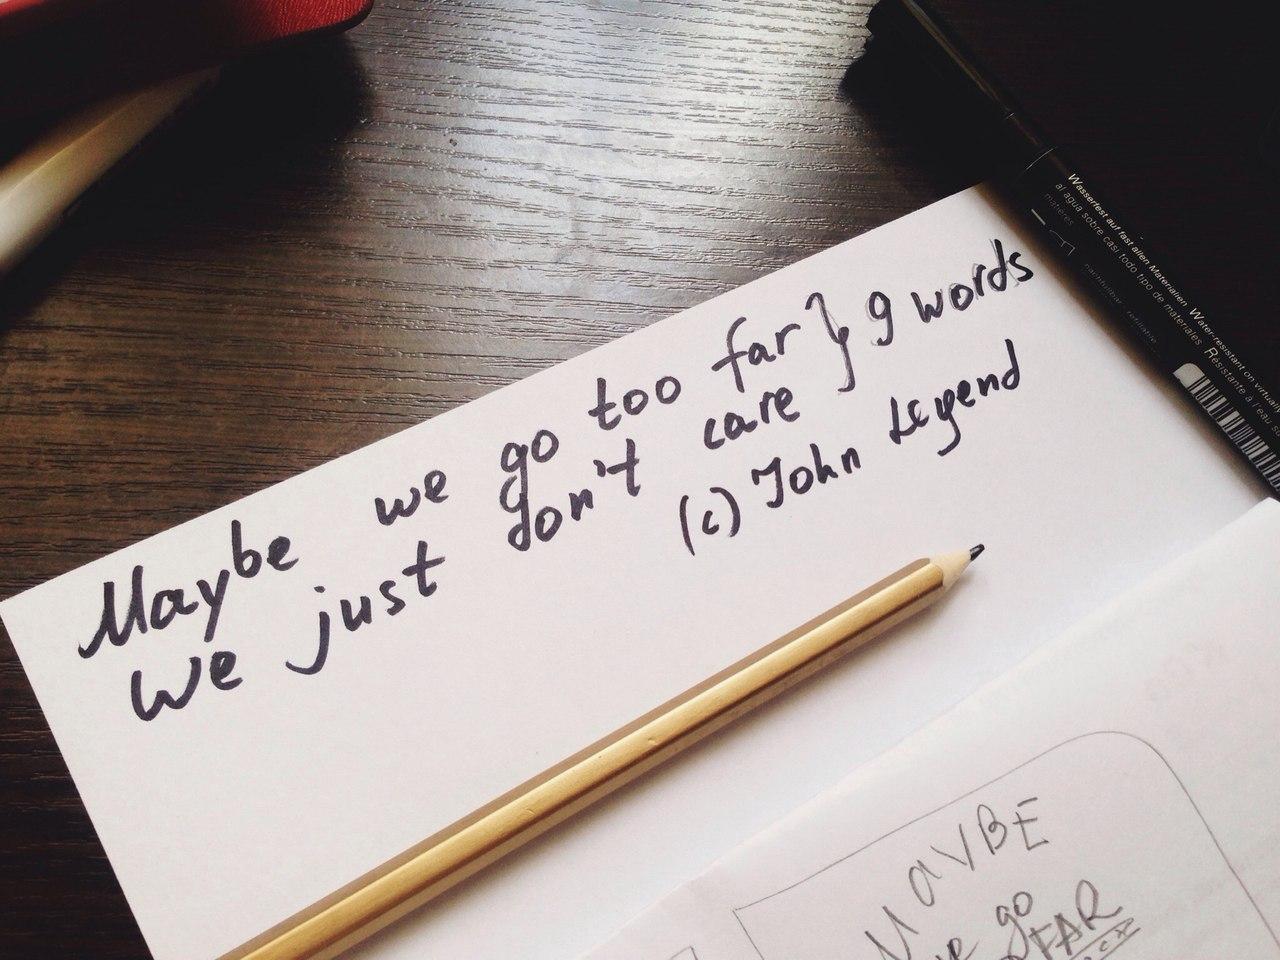 Maybe we go too far } 9 words
We just don't care
(c) John Legend
Wasserfest auf fast allen Materialien Water-resistant on virtual
al agua sobre casi todo tipo de materiales Résistante à l'eau s
matières
nachfüllbar refillable
MAYBE
we go
FAR